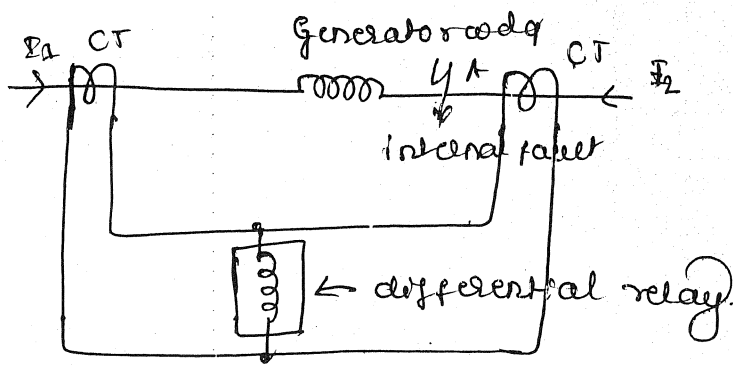 I1 CT
Generator coil
CT
A
I2
internal fault
← differential relay.